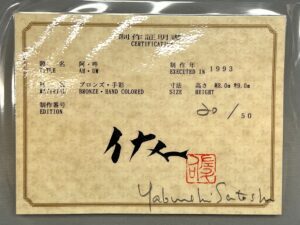 制作証明書
CERTIFICATION
題　名　阿・吽　　制作年　1993
TITLE　AH・UM　　EXECUTED IN
材　質　ブロンズ・手彩　　寸法　高さ　H8.0㎝ H9.0㎝
MATERIAL　BRONZE・HAND COLORED　　SIZE　HEIGHT
制作番号
EDITION　20/50
Yabuuchi Satoshi